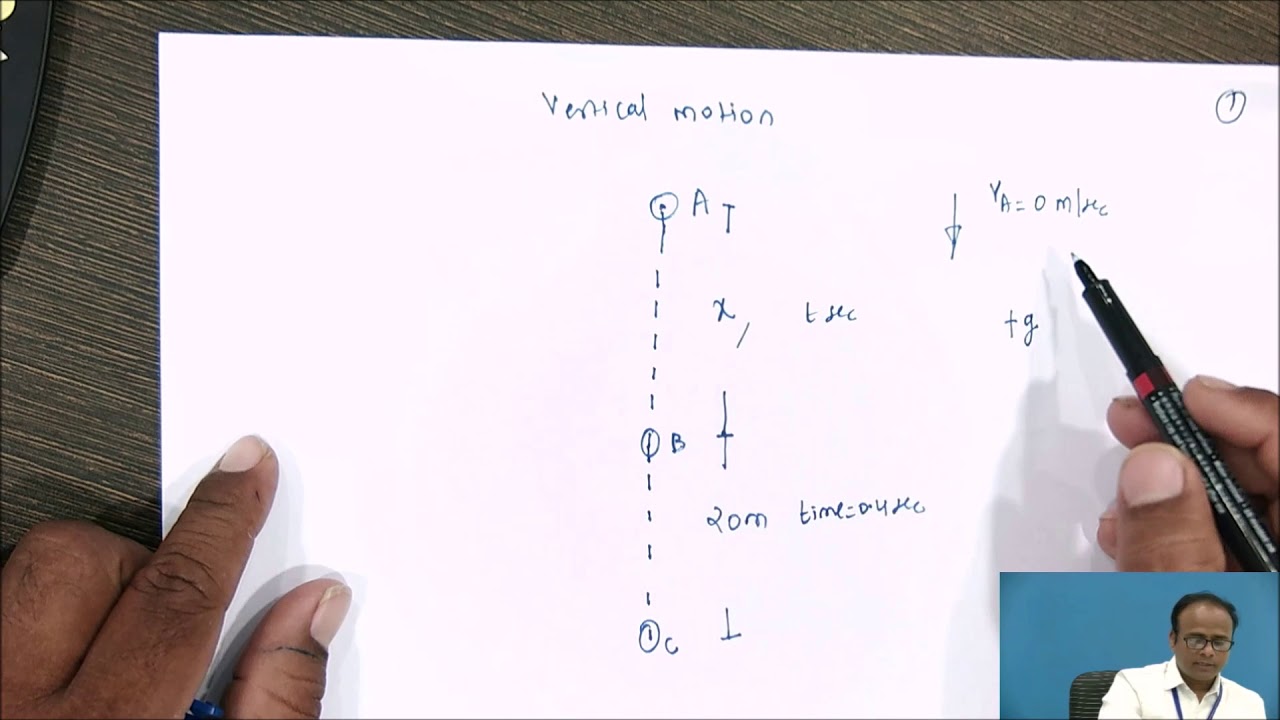 Vertical motion
1
A
VA = 0 m/sec
x, t sec
+g
B
20m time=0.4sec
C